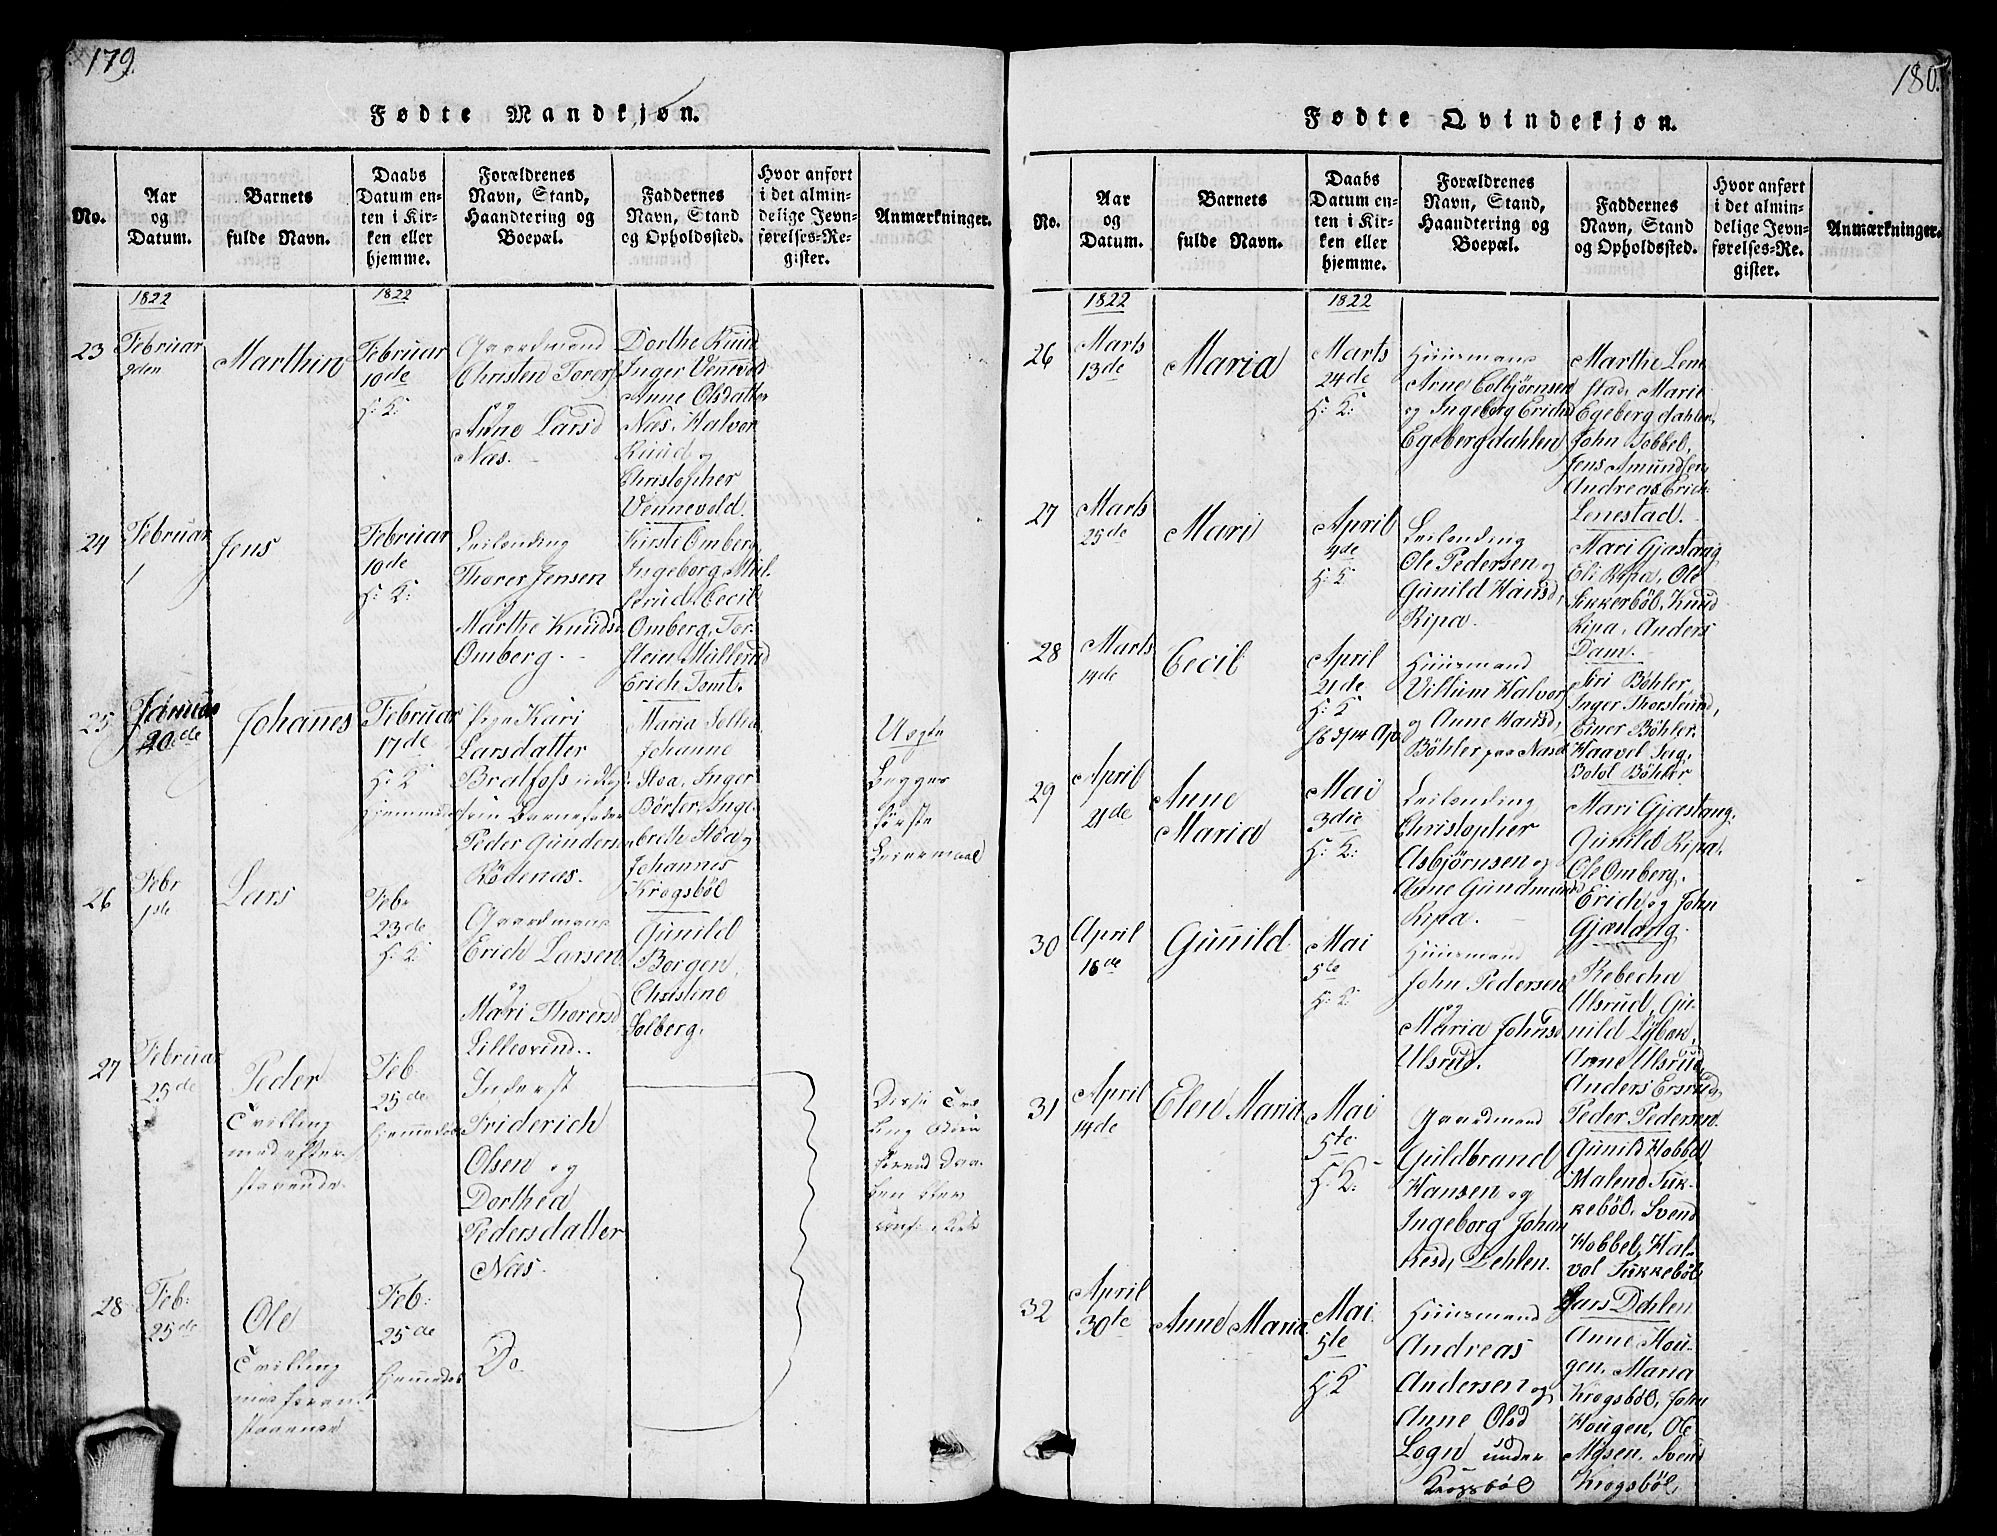 179.
Fødte Mandkjøn.
No.
Aar
og
Datum.
Barnets
fulde Navn.
Daabs
Datum en-
ten i Kir-
ken eller
hjemme.
Forældrenes
Navn, Stand,
Haandtering og
Boepæl.
Faddernes
Navn, Stand
og Opholdssted.
Hvor anført
i det almin-
delige Jevn-
førelses-Re-
gister.
Anmærkninger.
1822
1822
23
Februar
9den
Marthin
Februar
10de
H: K:
Gaardmand
Christen Torers
og
Anne Larsd
Næs.
Dorthe Ruud
Inger Vennevold
Anne Olsdatter
Næs, Halvor
Ruud og
Christopher
Vennevold.
24
Februar
1
Jens
Februar
10de
H: K:
Leilending
Thorer Jensen
og
Marthe Knuds
Omberg.
Kirsti Omberg,
Ingeborg Mül-
lerud, Cecil
Omberg, Tor-
stein Müllerud
Erich Tomt.
25
20de
Johannes
Februar
17de
H: K:
Pige Kari
Larsdatter
Bralfoss
Barnefader
Peder Gunders
Rödenæs.
Maria
Johanne
Stoa, Inger
Börter, Inge-
breth Stoa og
Johannes
Krogsböl
Uægte
Begges
første
Leiermaal
26
Febr
1ste
Lars
Febr
23de
H: K:
Gaardmand
Erich Larsen
og
Mari Thorersd
Lilleorind.
Gunild
Borgen,
Christine
Solberg.
27
Februar
25de
Peder
Tvilling
med efter-
staaende.
Feb
25de
hjemmedøb
Inderst
Friderich
Olsen og
Dorthea
Pedersdatter
Næs.
28
Feb:
25de
Ole
Tvilling
med foran
staaende
Feb:
25de
hjemmedøb
Do.
180.
Fødte Qvindekjøn.
No.
Aar
og
Datum.
Barnets
fulde Navn.
Daabs
Datum en-
ten i Kir-
ken eller
hjemme.
Forældrenes
Navn, Stand,
Haandtering og
Boepæl.
Faddernes
Navn, Stand
og Opholdssted.
Hvor anført
i det almin-
delige Jevn-
førelses-Re-
gister.
Anmærkninger.
1822
1822
26
Marts
13de
Maria
Marts
24de
H: K:
Huusmand
Arne Colbjørnsen
og Ingeborg Erichsd
Egebergdahlen
Marthe Lene
stad, Marie
Egebergdahlen,
John Hobbel,
Jens Amundsen
Andreas Erich
Lenestad.
27
Marts
25de
Mari
April
4de
H: K
Leilending
Ole Pedersen og
Gunild Hansd,
Ripa.
Mari Gjæstang
Eli Ripa, Ole
Sikkerböl, Knud
Ripa, Anders
Dam.
28
Marts
14de
Cecil
April
21de
H: K
Huusmand
Villum Halvor
og Anne Hansd,
Böhler paa Næsd
Siri Böhler
Inger Thorslund,
Einer Böhler
Haavel Seig,
Botol Böhler
29
April
21de
Anne
Maria
Mai
3die
H: K:
Leilending
Christopher
Asbjørnsen og
Anne Gundmund
Ripa.
Mari Gjæstang,
Gunild Ripa,
Ole Omberg,
Erich og John
Gjæstang.
30
April
16de
Gunild
Mai
5te
H: K
Huusmand
John Pedersen
og
Maria Johnsd
Ulsrud.
Rebecha
Ulsrud, Gu-
nild
Arne Ulsrud
Anders Ersrud og
Peder Pedersen
31
April
14de
Elen Maria
Mai
5te
H: K:
Gaardmand
Guldbrand
Hansen og
Ingeborg Johan
nesd, Dehlen.
Gunild Hobbel,
Malene Suk-
keböl, Svend
Hobbel, Hal-
vol Sukkeböl
Lars Dehlen
32
April
30te
Anne Maria
Mai
5te
H: K
Huusmand
Andreas
Andersen og
Anne Olsd
Logn under
Krogsböl
Anne Hou-
gen, Maria
Krogsböl, John
Hougen, Ole
Mysen, Svend
Krogsböl,